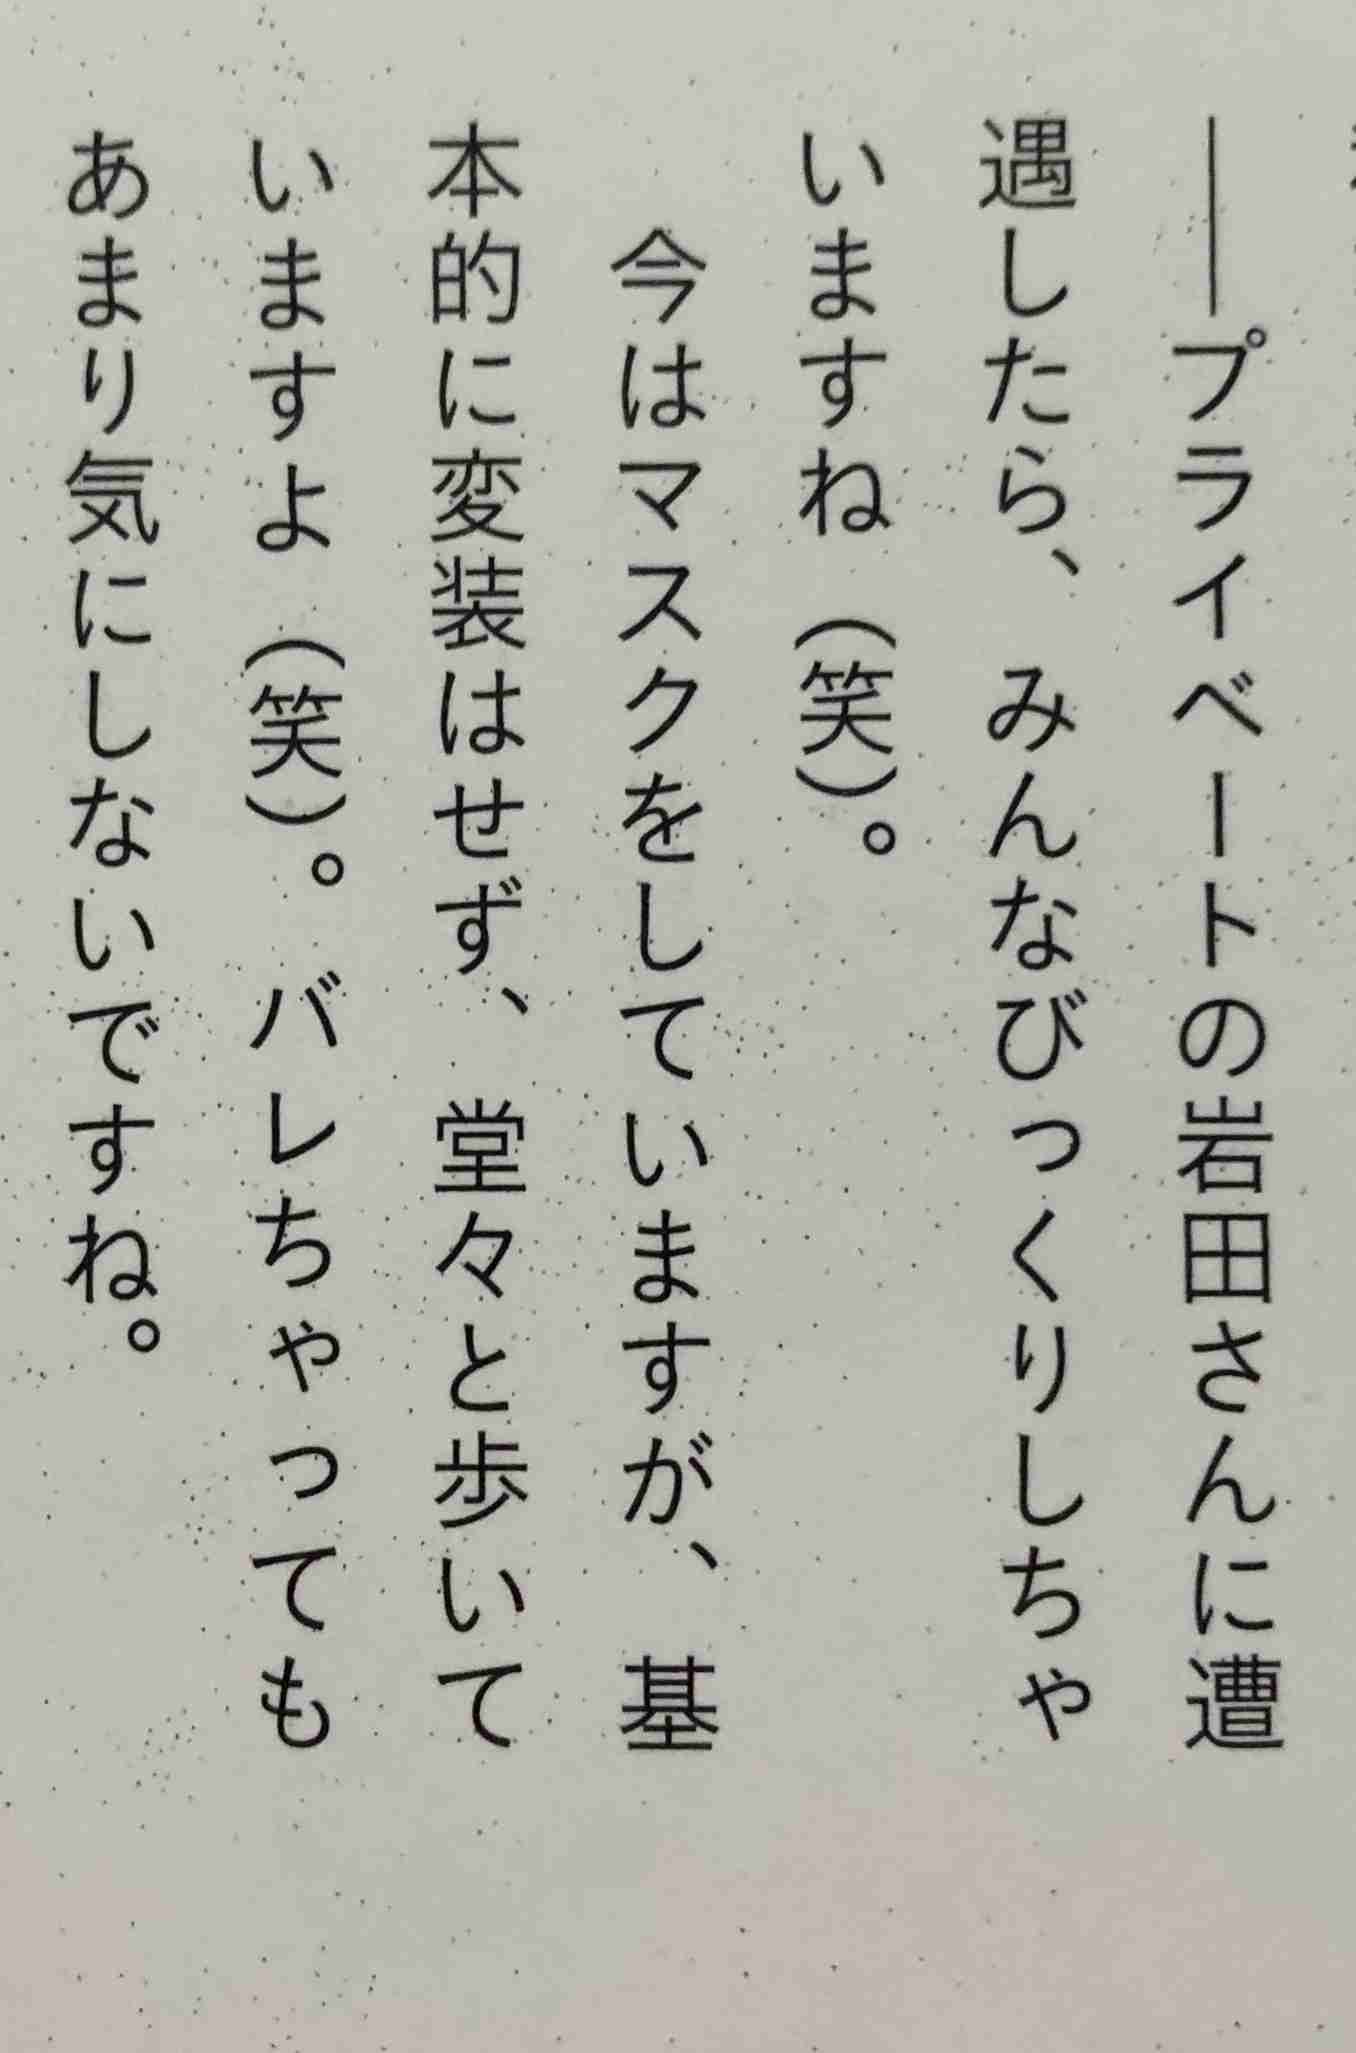 ――プライベートの岩田さんに遭
遇したら、みんなびっくりしちゃ
いますね（笑）。
今はマスクをしていますが、基
本的に変装はせず、堂々と歩いて
いますよ（笑）。バレちゃっても
あまり気にしないですね。